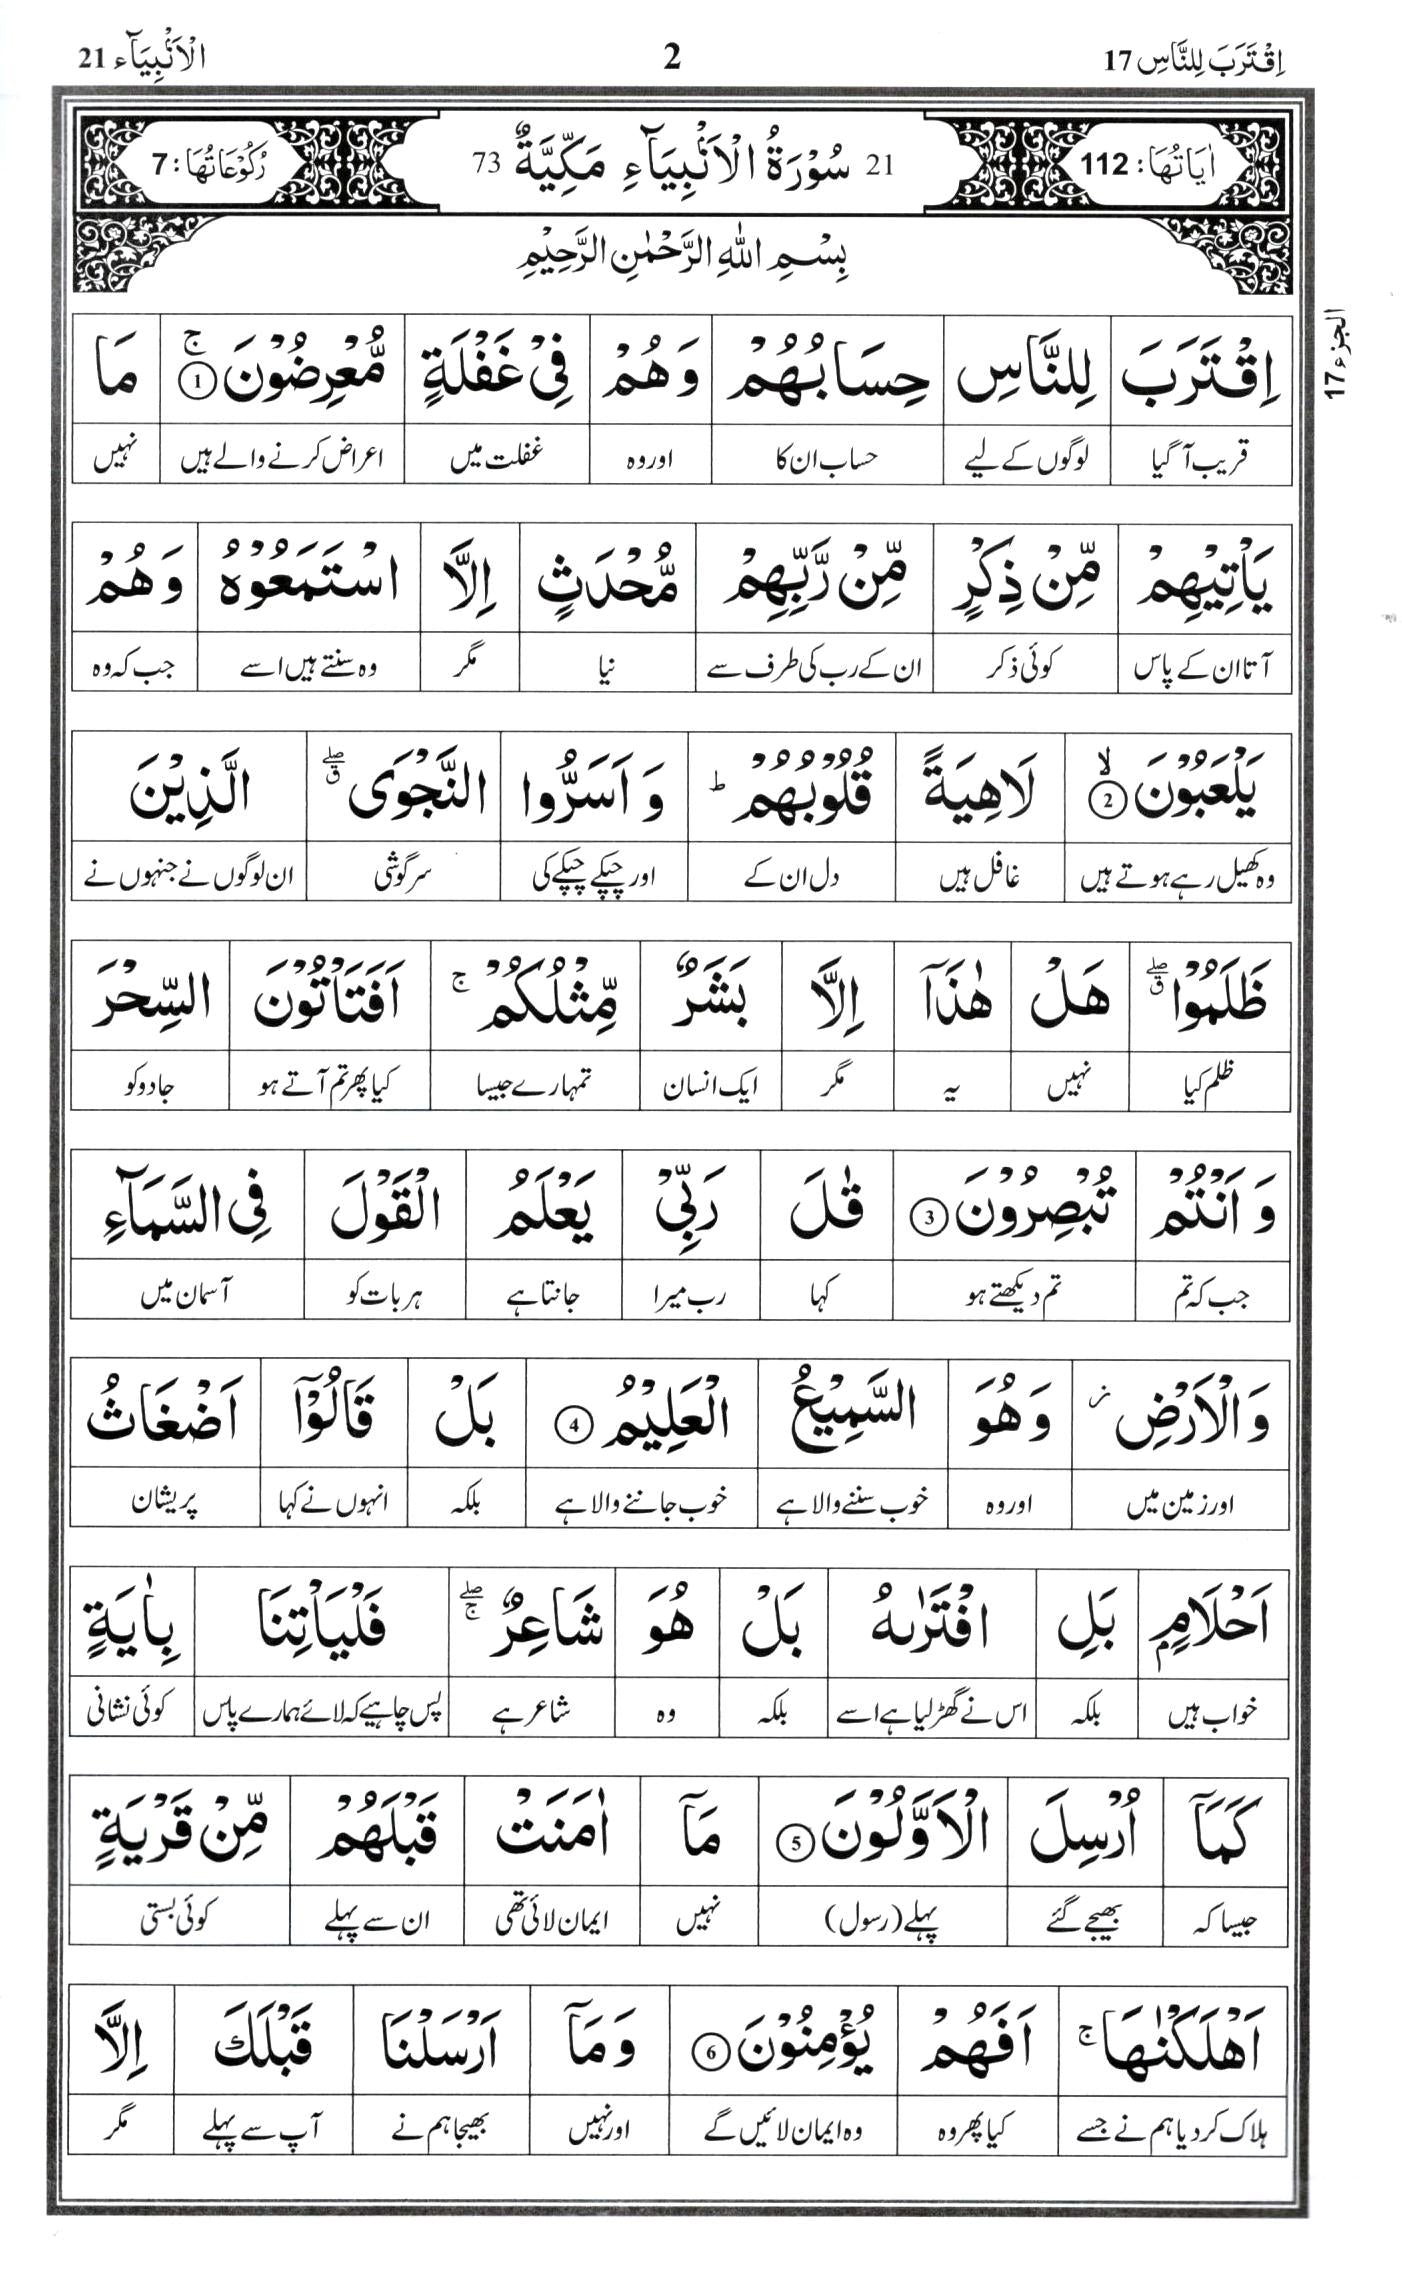 اِقْتَرَبَ لِلنَّاسِ 17 2 الْاَنْۢبِيَآء 21
اٰيَاتُهَا: 112 21 سُوْرَةُ الْاَنْۢبِيَآءِ مَكِّيَّةٌ 73 رُكُوْعَاتُهَا: 7
بِسْمِ اللّٰهِ الرَّحْمٰنِ الرَّحِيْمِ
الجزء 17
اِقْتَرَبَ لِلنَّاسِ حِسَابُهُمْ وَهُمْ فِيْ غَفْلَةٍ مُّعْرِضُوْنَ ۚ 1 مَا
قریب آ گیا لوگوں کے لیے حساب ان کا اور وہ غفلت میں اعراض کرنے والے ہیں نہیں
يَاْتِيْهِمْ مِّنْ ذِكْرٍ مِّنْ رَّبِّهِمْ مُّحْدَثٍ اِلَّا اسْتَمَعُوْهُ وَهُمْ
آتا ان کے پاس کوئی ذکر ان کے رب کی طرف سے نیا مگر وہ سنتے ہیں اسے جب کہ وہ
يَلْعَبُوْنَ ۙ 2 لَاهِيَةً قُلُوْبُهُمْ ؕ وَ اَسَرُّوا النَّجْوَى ۖق الَّذِيْنَ
وہ کھیل رہے ہوتے ہیں غافل ہیں دل ان کے اور چپکے چپکے کی سرگوشی ان لوگوں نے جنہوں نے
ظَلَمُوْا ۖق هَلْ هٰذَآ اِلَّا بَشَرٌ مِّثْلُكُمْ ۚ اَفَتَاْتُوْنَ السِّحْرَ
ظلم کیا نہیں یہ مگر ایک انسان تمہارے جیسا کیا پھر تم آتے ہو جادو کو
وَ اَنْتُمْ تُبْصِرُوْنَ 3 قٰلَ رَبِّيْ يَعْلَمُ الْقَوْلَ فِي السَّمَآءِ
جب کہ تم تم دیکھتے ہو کہا رب میرا جانتا ہے ہر بات کو آسمان میں
وَالْاَرْضِ ز وَهُوَ السَّمِيْعُ الْعَلِيْمُ 4 بَلْ قَالُوْٓا اَضْغَاثُ
اور زمین میں اور وہ خوب سننے والا ہے خوب جاننے والا ہے بلکہ انہوں نے کہا پریشان
اَحْلَامٍۭ بَلِ افْتَرٰىهُ بَلْ هُوَ شَاعِرٌ ۖۚ فَلْيَاْتِنَا بِاٰيَةٍ
خواب ہیں بلکہ اس نے گھڑ لیا ہے اسے بلکہ وہ شاعر ہے پس چاہیے کہ لائے ہمارے پاس کوئی نشانی
كَمَآ اُرْسِلَ الْاَوَّلُوْنَ 5 مَآ اٰمَنَتْ قَبْلَهُمْ مِّنْ قَرْيَةٍ
جیسا کہ بھیجے گئے پہلے (رسول) نہیں ایمان لائی تھی ان سے پہلے کوئی بستی
اَهْلَكْنٰهَا ۚ اَفَهُمْ يُؤْمِنُوْنَ 6 وَمَآ اَرْسَلْنَا قَبْلَكَ اِلَّا
ہلاک کر دیا ہم نے جسے کیا پھر وہ وہ ایمان لائیں گے اور نہیں بھیجا ہم نے آپ سے پہلے مگر